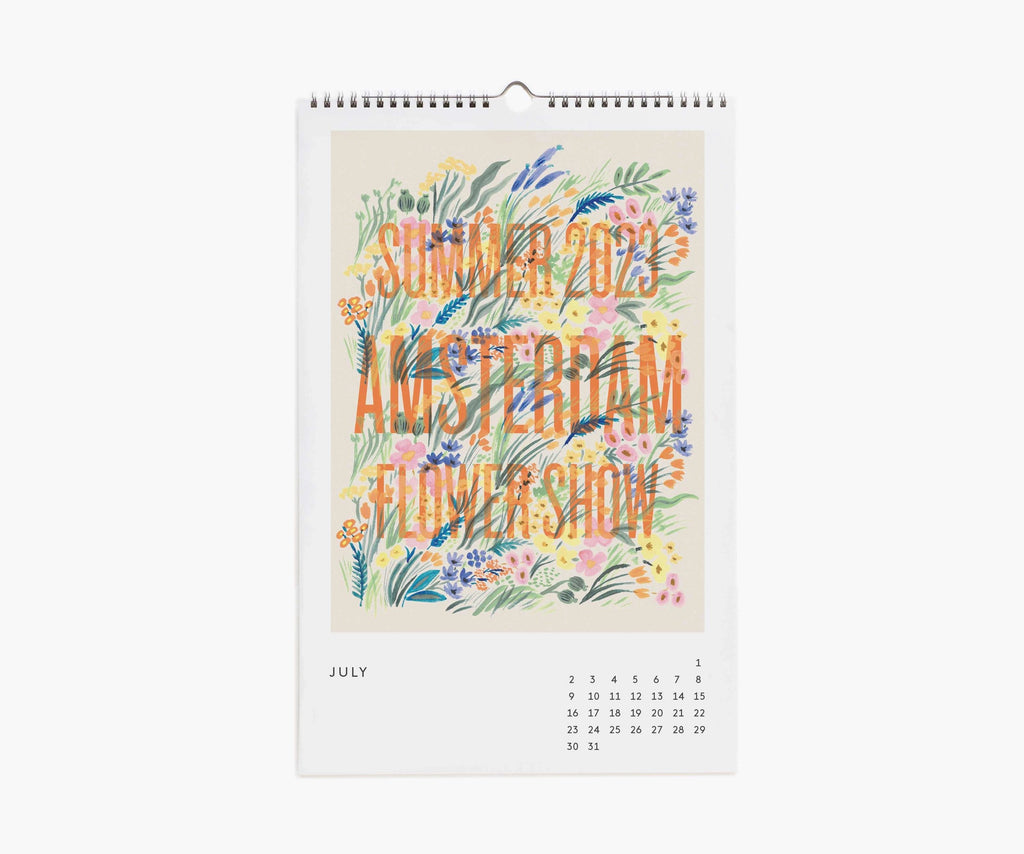 SUMMER 2023
AMSTERDAM
FLOWER SHOW
JULY
1
2 3 4 5 6 7 8
9 10 11 12 13 14 15
16 17 18 19 20 21 22
23 24 25 26 27 28 29
30 31